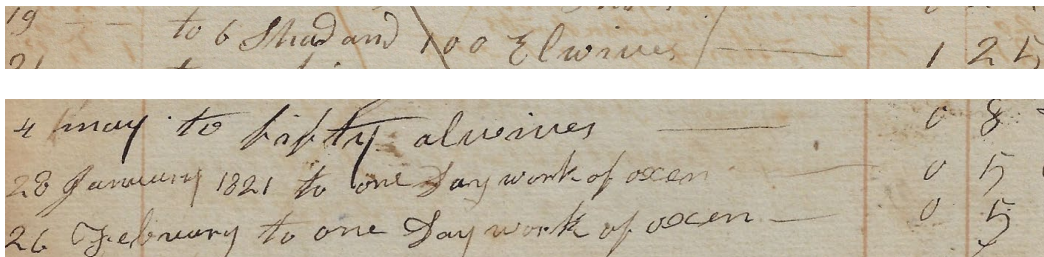 19 — — to 6 Shad and 100 Elwives — 1 25
21 to
4 may to fifty alwives — 0 8
28 January 1821 to one Day work of oxen — 0 5
26 February to one Day work of oxen — 0 5